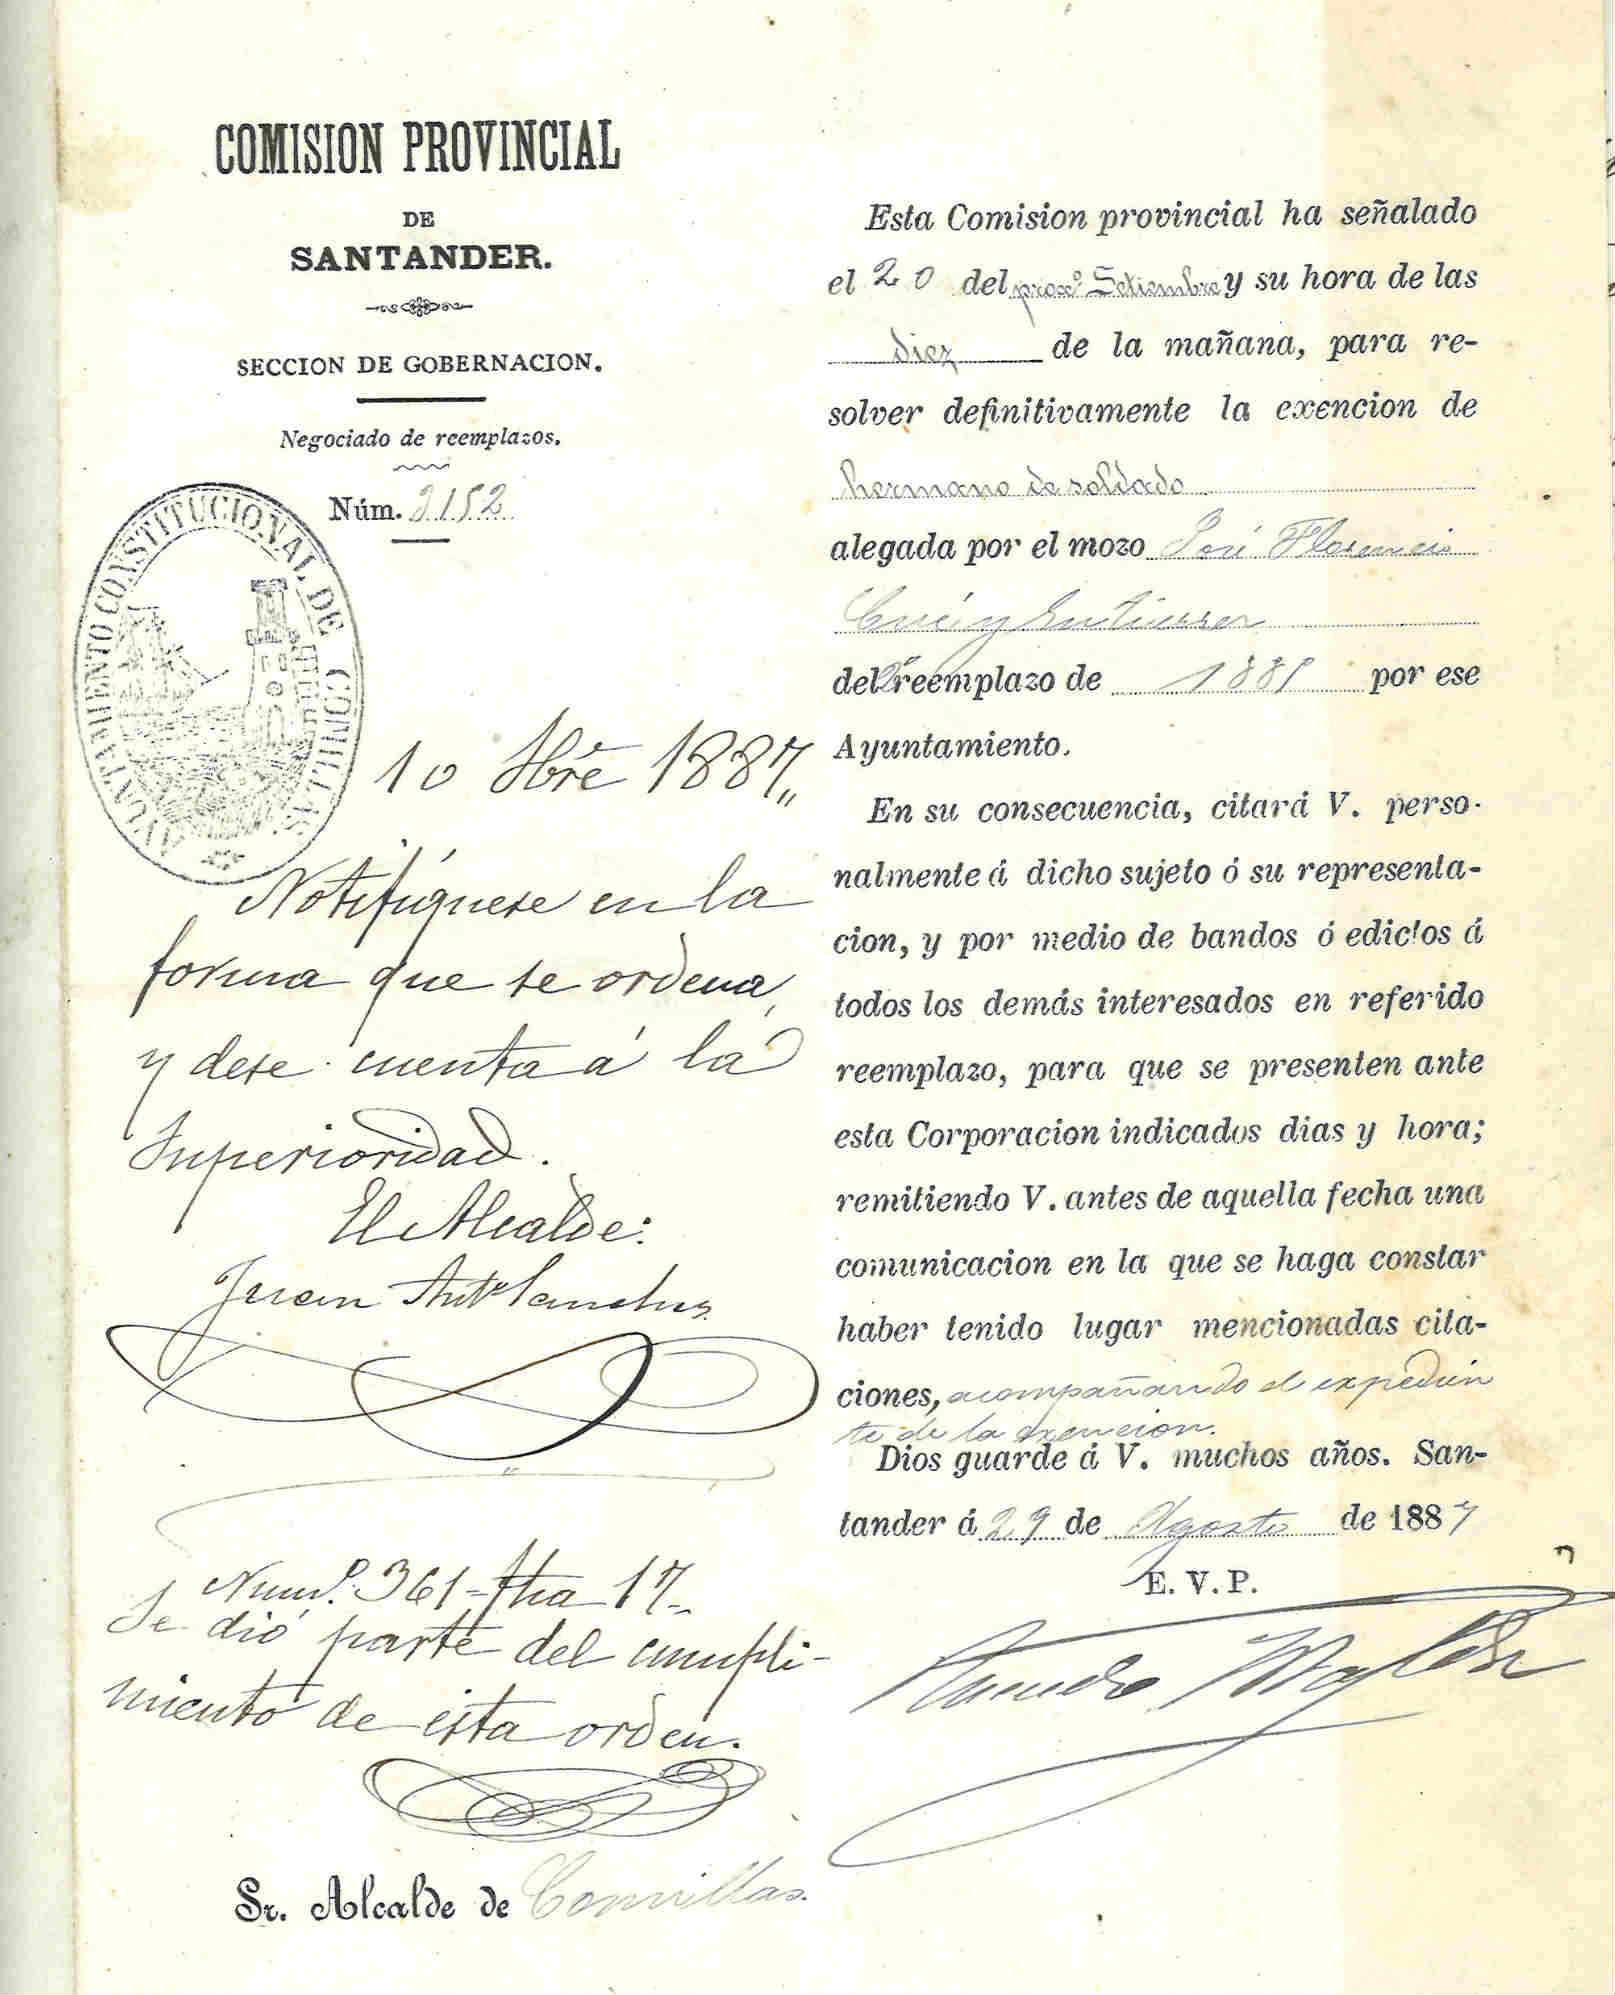 COMISION PROVINCIAL
DE
SANTANDER.
SECCION DE GOBERNACION.
Negociado de reemplazos.
Núm. 2152
AYUNTAMIENTO CONSTITUCIONAL DE COMILLAS
10 7bre 1887
Notifíquese en la
forma que se ordena,
y dese cuenta á la
Superioridad.
El Alcalde:
Juan Anto Sanchez
Numº. 361 = fha 17
Se dió parte del cumpli-
miento de esta orden.
Sr. Alcalde de Comillas.
Esta Comision provincial ha señalado
el 20 del proxº Setiembre y su hora de las
diez de la mañana, para re-
solver definitivamente la exencion de
hermano de soldado
alegada por el mozo José Florencio
Gutierrez
del 2º reemplazo de 1885 por ese
Ayuntamiento.
En su consecuencia, citará V. perso-
nalmente á dicho sujeto ó su representa-
cion, y por medio de bandos ó edictos á
todos los demás interesados en referido
reemplazo, para que se presenten ante
esta Corporacion indicados dias y hora;
remitiendo V. antes de aquella fecha una
comunicacion en la que se haga constar
haber tenido lugar mencionadas cita-
ciones, acompañando el expedien
te de la exencion.
Dios guarde á V. muchos años. San-
tander á 29 de Agosto de 1887
E. V. P.